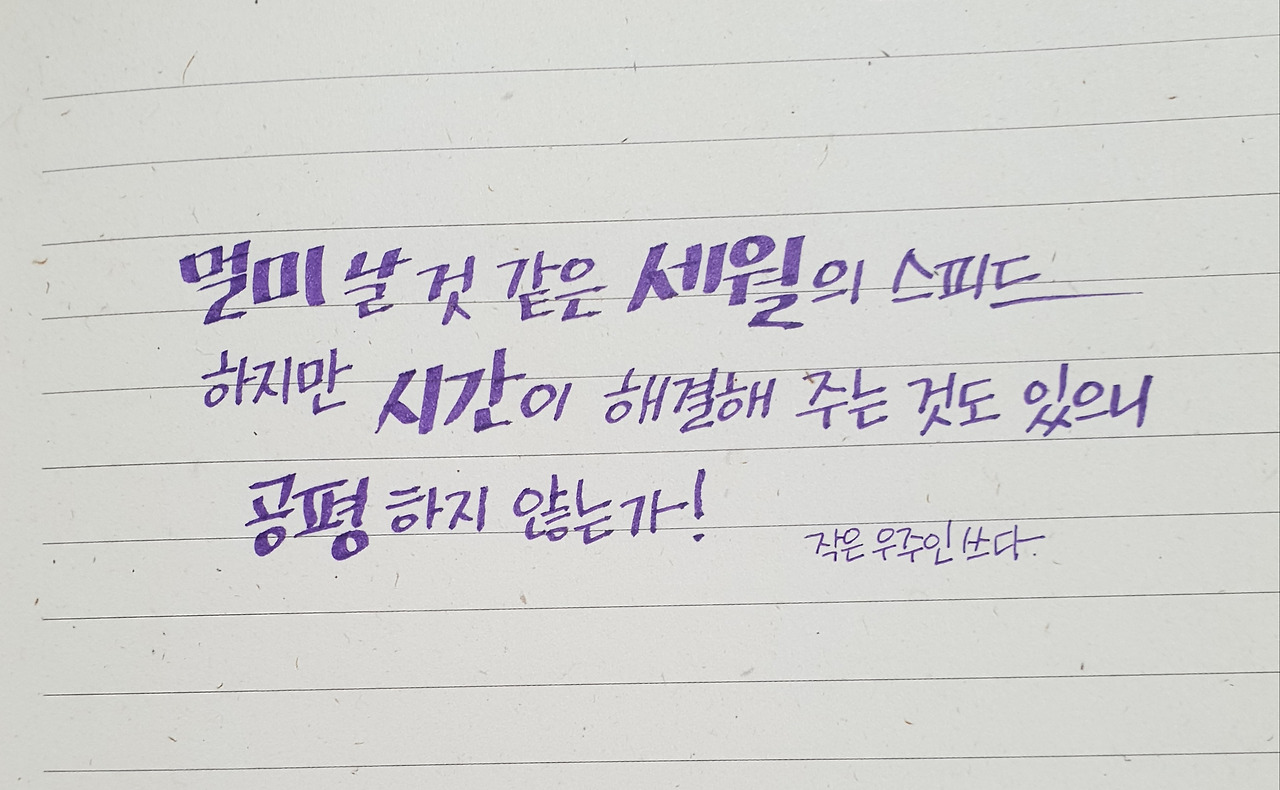 멀미 날 것 같은 세월의 스피드
하지만 시간이 해결해 주는 것도 있으니
공평하지 않는가!
작은 우주인 쓰다